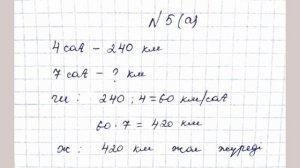 N 5 (а)
4 сағ – 240 км
7 сағ – ? км
ш : 240 : 4 = 60 км/сағ
60 · 7 = 420 км
ж : 420 км жол жүреді